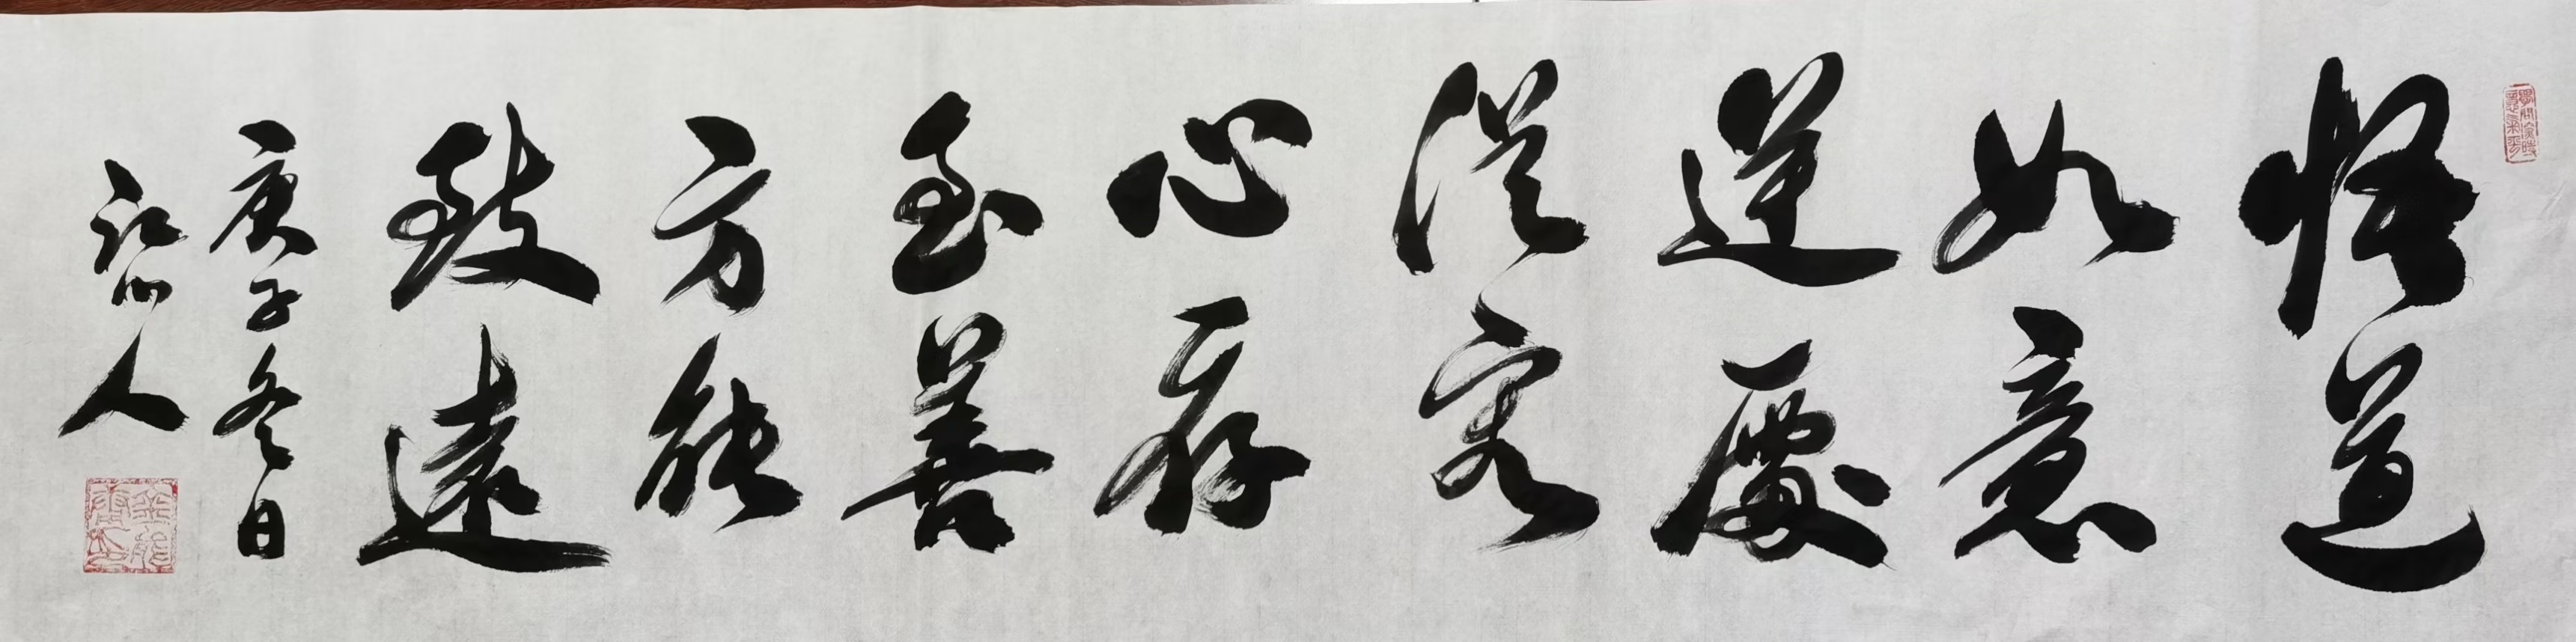 悟道
如意
逆處
從容
心存
至善
方能
致遠
庚子冬日
山人